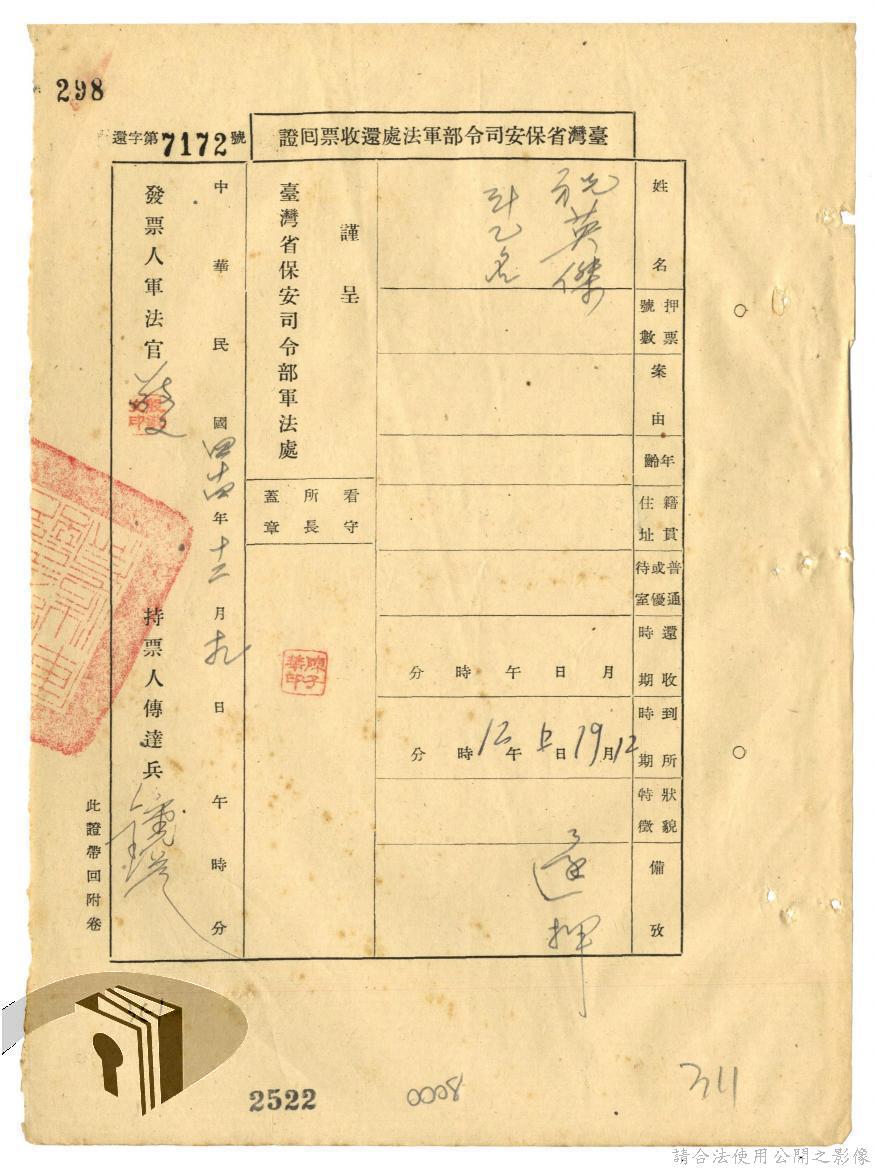 298
臺灣省保安司令部軍法處還收票回證
還字第7172號
姓名
祝英傑
計乙名
押票號數
案由
年齡
籍貫住址
普通或優待室
還收時期
月 日 午 時 分
到所時期
12月19日上午12時 分
狀貌特徵
備攷
還押
謹呈
臺灣省保安司令部軍法處
看守所長蓋章
陳子華印
中華民國四十四年十二月十九日 午 時 分
發票人軍法官
持票人傳達兵
此證帶回附卷
2522
0008
311
請合法使用公開之影像